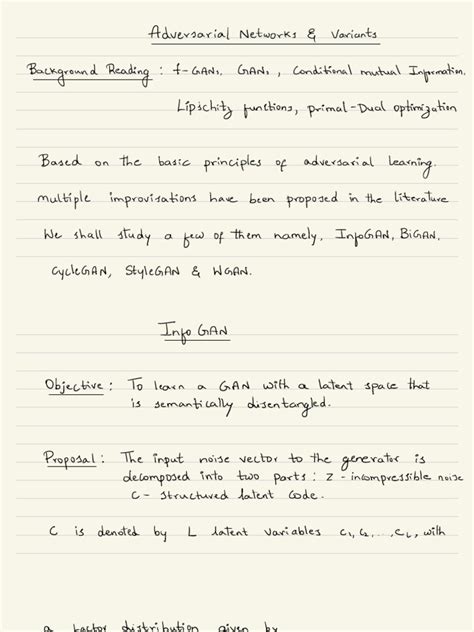 Adversarial Networks & Variants
Background Reading : f-GANs, GANs, Conditional mutual Information.
Lipschitz functions, primal-Dual optimization
Based on the basic principles of adversarial learning.
multiple improvisations have been proposed in the literature
We shall study a few of them namely, InfoGAN, BiGAN,
CycleGAN, StyleGAN & WGAN.
Info GAN
Objective : To learn a GAN with a latent space that
is semantically disentangled.
Proposal : The input noise vector to the generator is
decomposed into two parts : Z - incompressible noise
C - structured latent Code.
C is denoted by L latent variables C₁, C₂, ..., C_L, with
a factor distribution given by